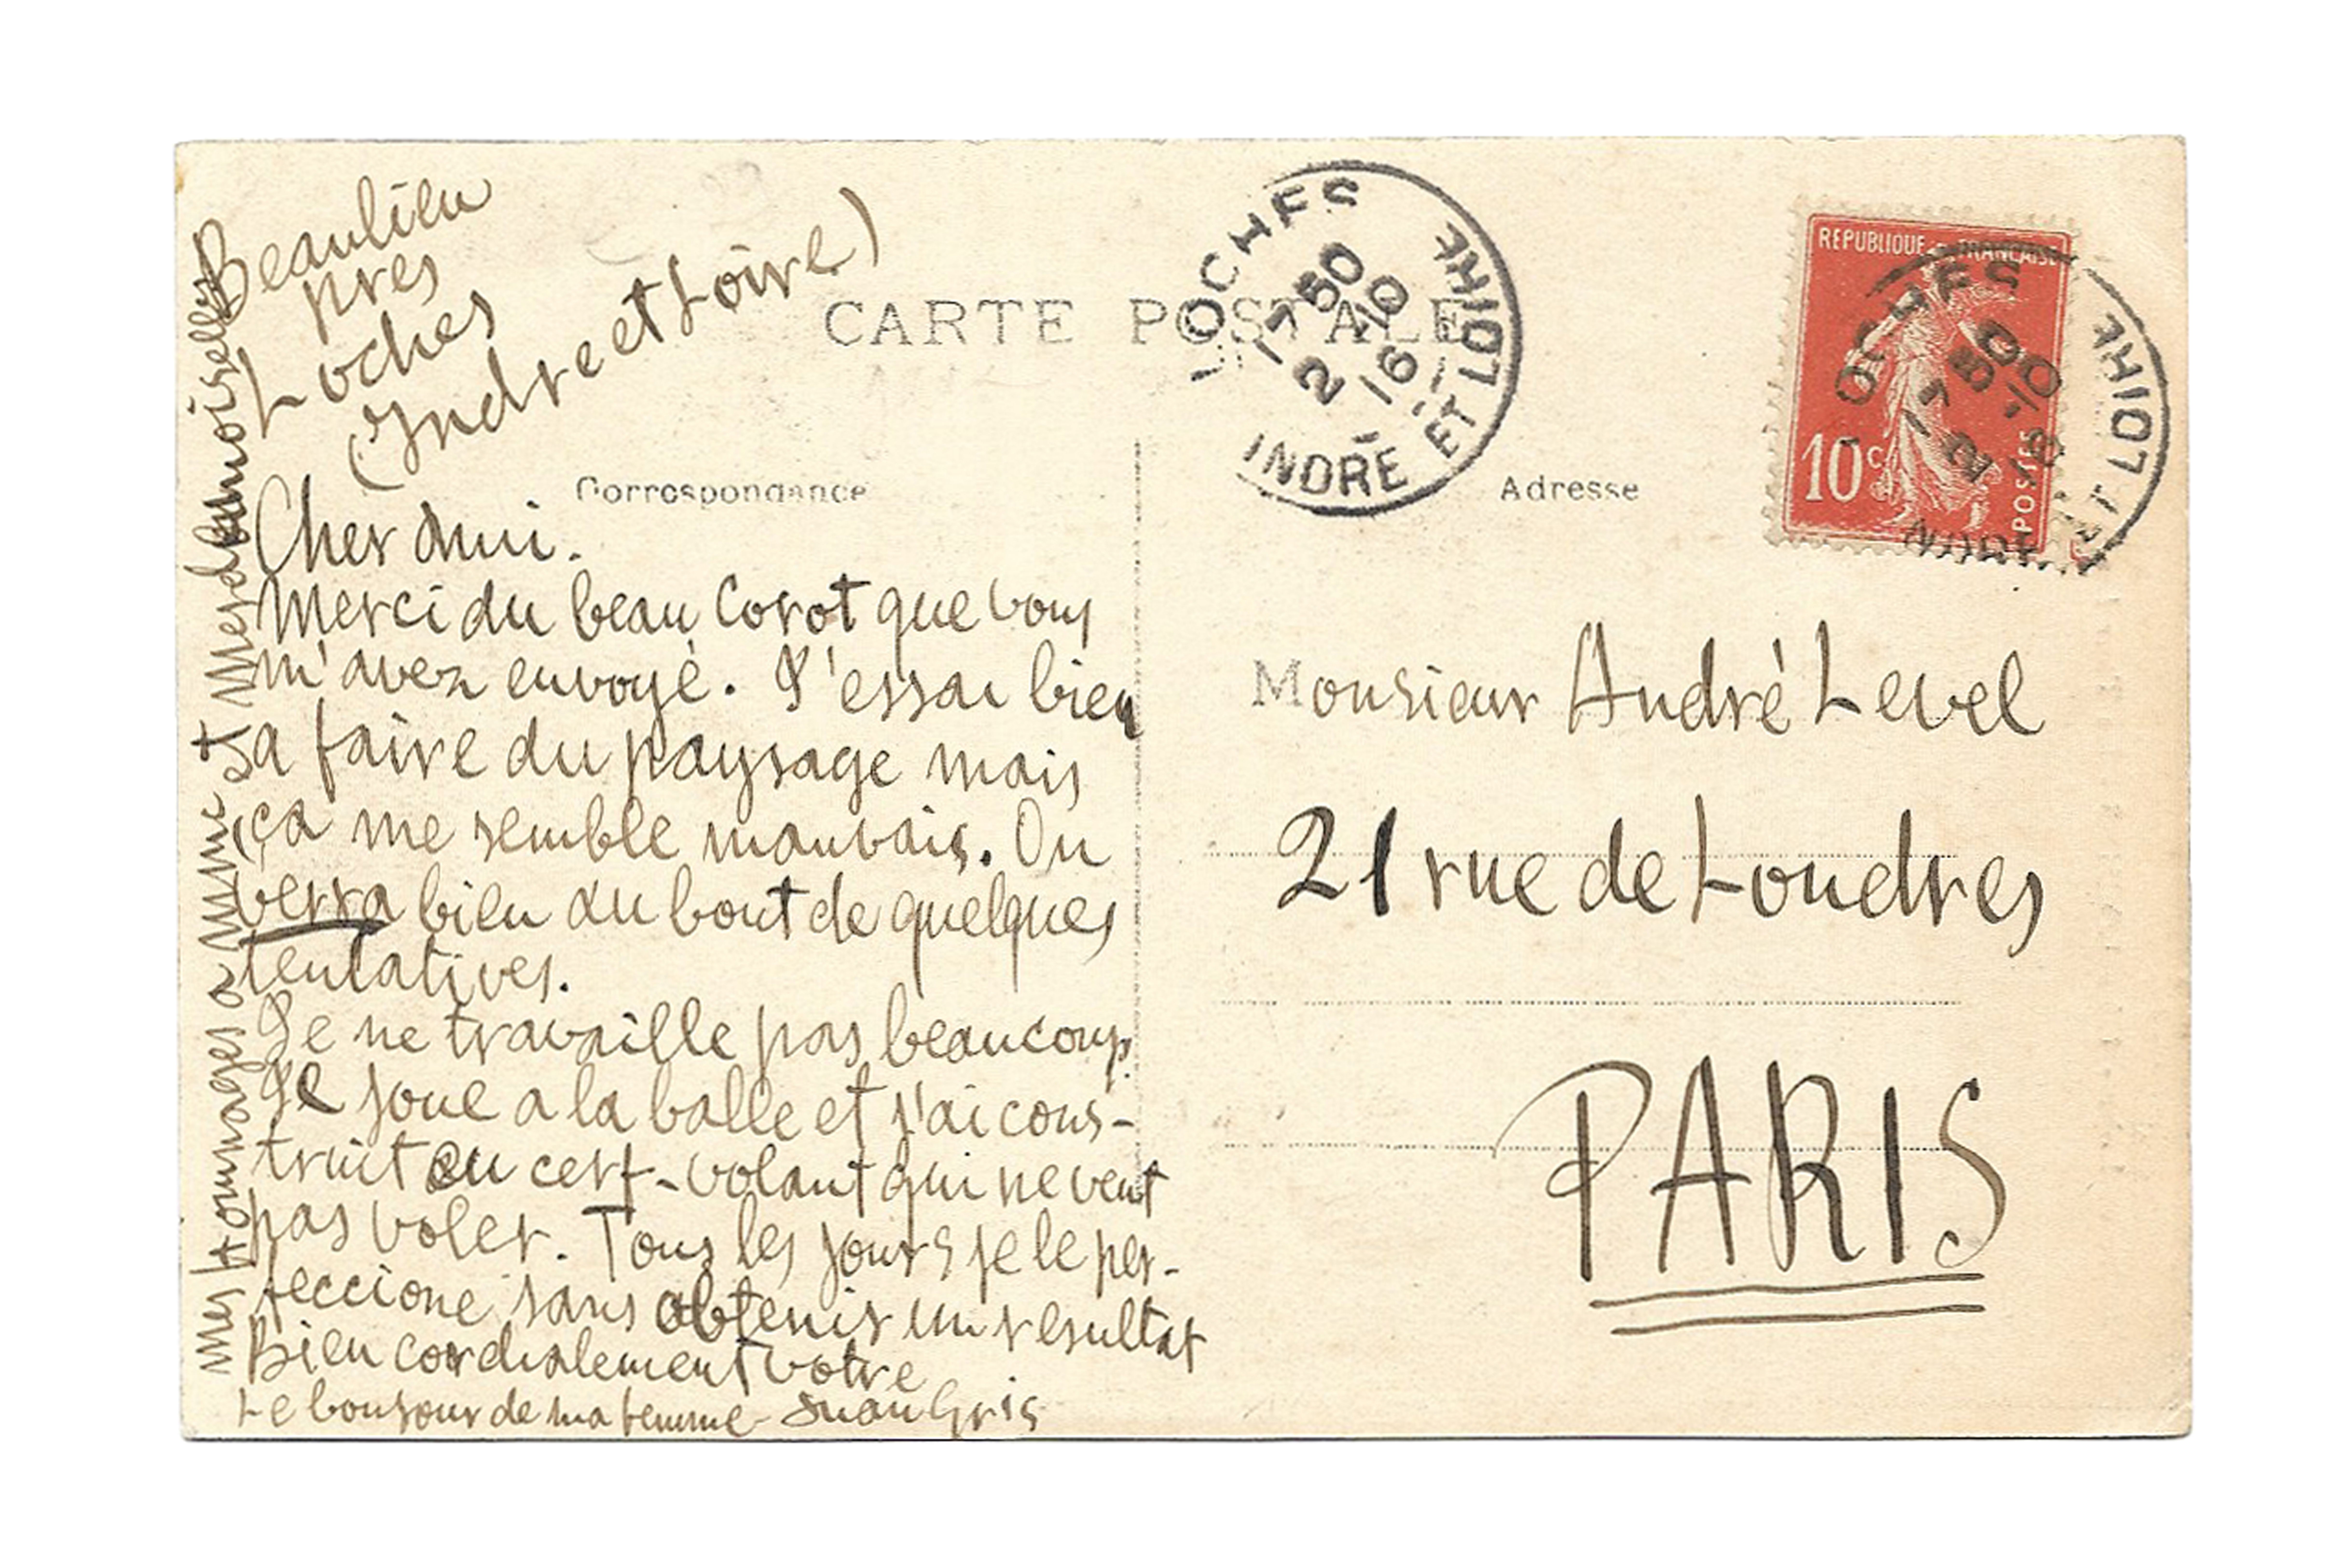 Beaulieu
pres
Loches
(Indre et Loire)
CARTE POSTALE
Correspondance
Cher Ami.
Merci du beau Corot que vous
m'avez envoyé. J'essai bien
a faire du paysage mais
ça me semble mauvais. On
verra bien au bout de quelques
tentatives.
Je ne travaille pas beaucoup.
Je joue a la balle et j'ai cons-
truit un cerf-volant qui ne veut
pas voler. Tous les jours je le per-
feccione sans obtenir un resultat
Bien cordialement votre
Le bonjour de ma femme - Juan Gris
Mes Hommages a Mme et Mesdemoiselles
LOCHES
17 50
2 -10
16
INDRE ET LOIRE
REPUBLIQUE FRANCAISE
10c
POSTES
LOCHES
17 50
2 -10
16
INDRE ET LOIRE
Adresse
Monsieur André Level
21 rue de Londres
PARIS